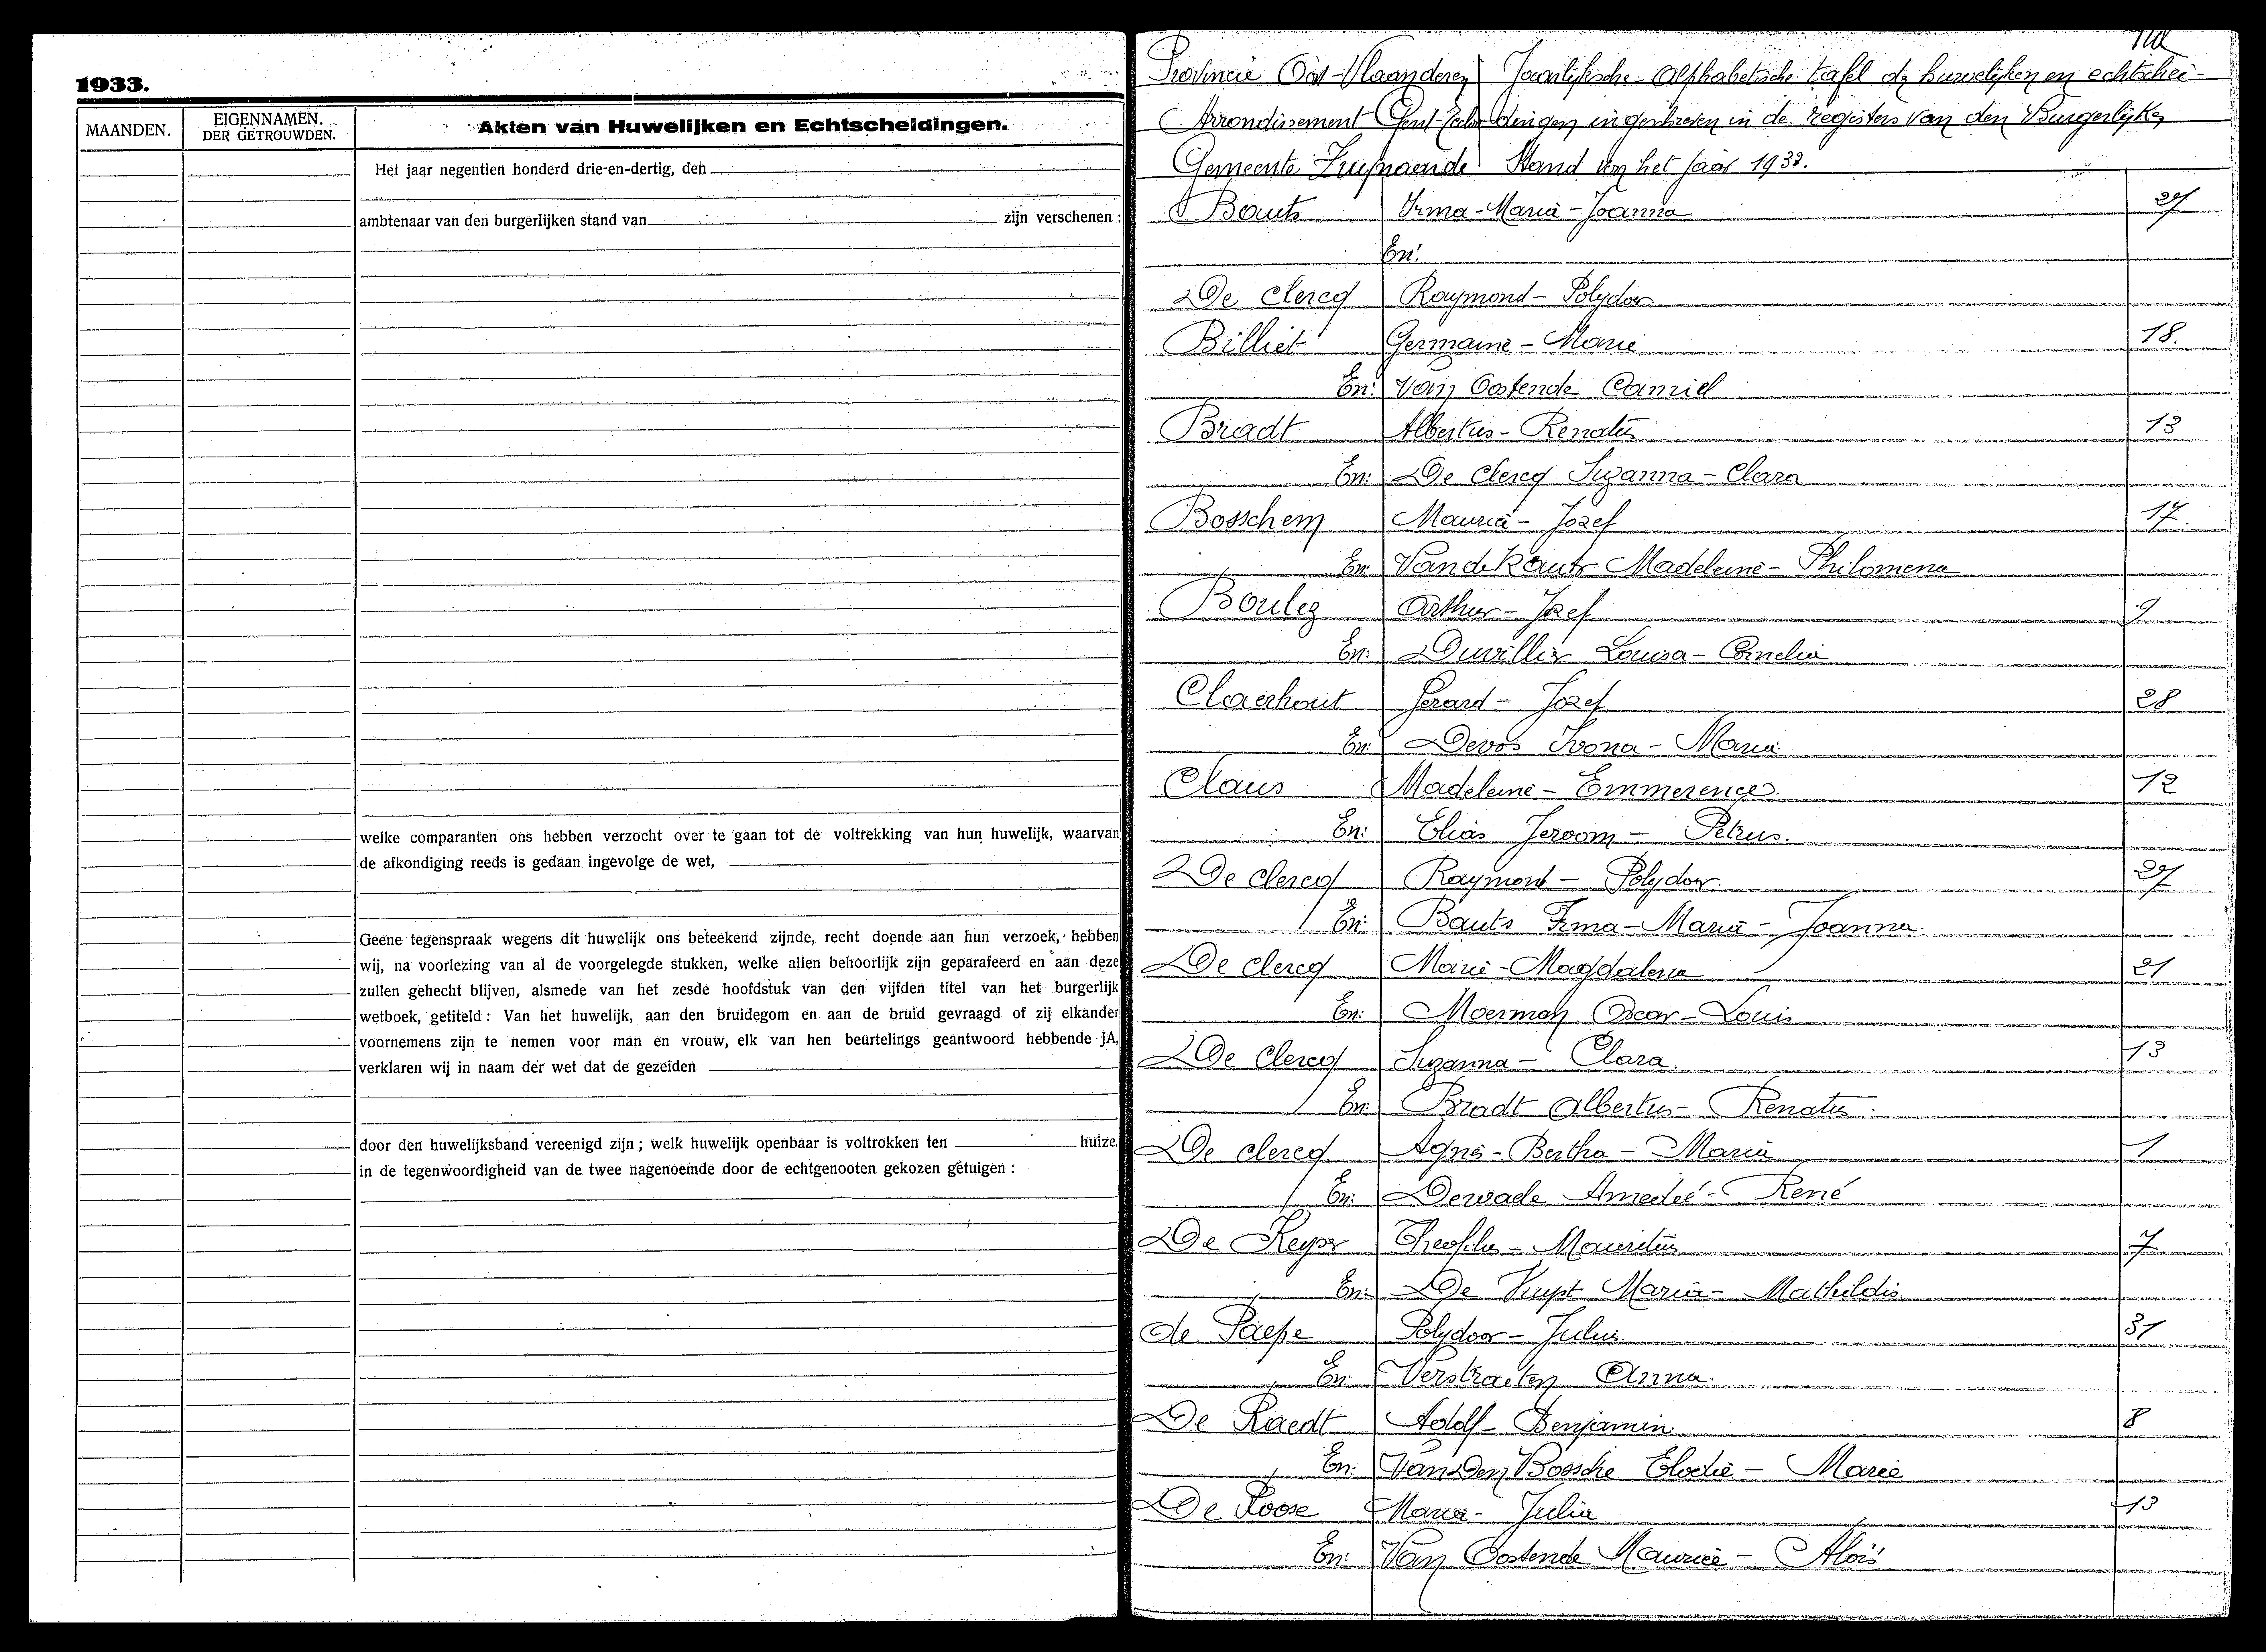 1933.
MAANDEN.
EIGENNAMEN.
DER GETROUWDEN.
Akten van Huwelijken en Echtscheidingen.
Het jaar negentien honderd drie-en-dertig, den
ambtenaar van den burgerlijken stand van zijn verschenen :
welke comparanten ons hebben verzocht over te gaan tot de voltrekking van hun huwelijk, waarvan
de afkondiging reeds is gedaan ingevolge de wet,
Geene tegenspraak wegens dit huwelijk ons beteekend zijnde, recht doende aan hun verzoek, hebben
wij, na voorlezing van al de voorgelegde stukken, welke allen behoorlijk zijn geparafeerd en aan deze
zullen gehecht blijven, alsmede van het zesde hoofdstuk van den vijfden titel van het burgerlijk
wetboek, getiteld : Van het huwelijk, aan den bruidegom en aan de bruid gevraagd of zij elkander
voornemens zijn te nemen voor man en vrouw, elk van hen beurtelings geantwoord hebbende JA,
verklaren wij in naam der wet dat de gezeiden
door den huwelijksband vereenigd zijn ; welk huwelijk openbaar is voltrokken ten huize,
in de tegenwoordigheid van de twee nagenoemde door de echtgenooten gekozen getuigen :
Provincie Oost-Vlaanderen Jaarlijksche Alphabetische tafel der huwelijken en echtschei-
Arrondissement Gent-Eeclo dingen ingeschreven in de registers van den Burgerlijken
Gemeente Stand van het jaar 1933.
Bauts Irma-Maria-Joanna 27
En:
De Clercq Raymond-Polydor
Billiet Germaine-Marie 18.
En: Van Oostende Camiel
Bradt Albertus-Renatus 13
En: De Clercq Suzanna-Clara
Bosschem Maurice-Jozef 17.
En: Madeleine-Philomena
Boulez Arthur-Jozef 9
En: Duvillier Louisa-Cornelia
Claerhout Gerard-Jozef 28
En: Devos Ivona-Maria
Claus Madeleine-Emmerence. 12
En: Elias Jeroom-Petrus.
De Clercq Raymond-Polydoor. 27
En: Bauts Irma-Maria-Joanna.
De Clercq Marie-Magdalena 21
En: Moerman Oscar-Louis
De Clercq Suzanna-Clara. 13
En: Bradt Albertus-Renatus.
De Clercq Agnes-Bertha-Maria 1
En: Dewaele Amedeé-René
De Keyser Theofilus-Mauritius 7
En: De Kuyst Maria-Mathildis
de Paepe Polydoor-Julius. 31
En: Verstraeten Anna.
De Raedt Adolf-Benjamin. 8
En: Van Den Bossche Elodie-Marie
De Roose Maria-Julia 13
En: Van Oostende Maurice-Aloïs